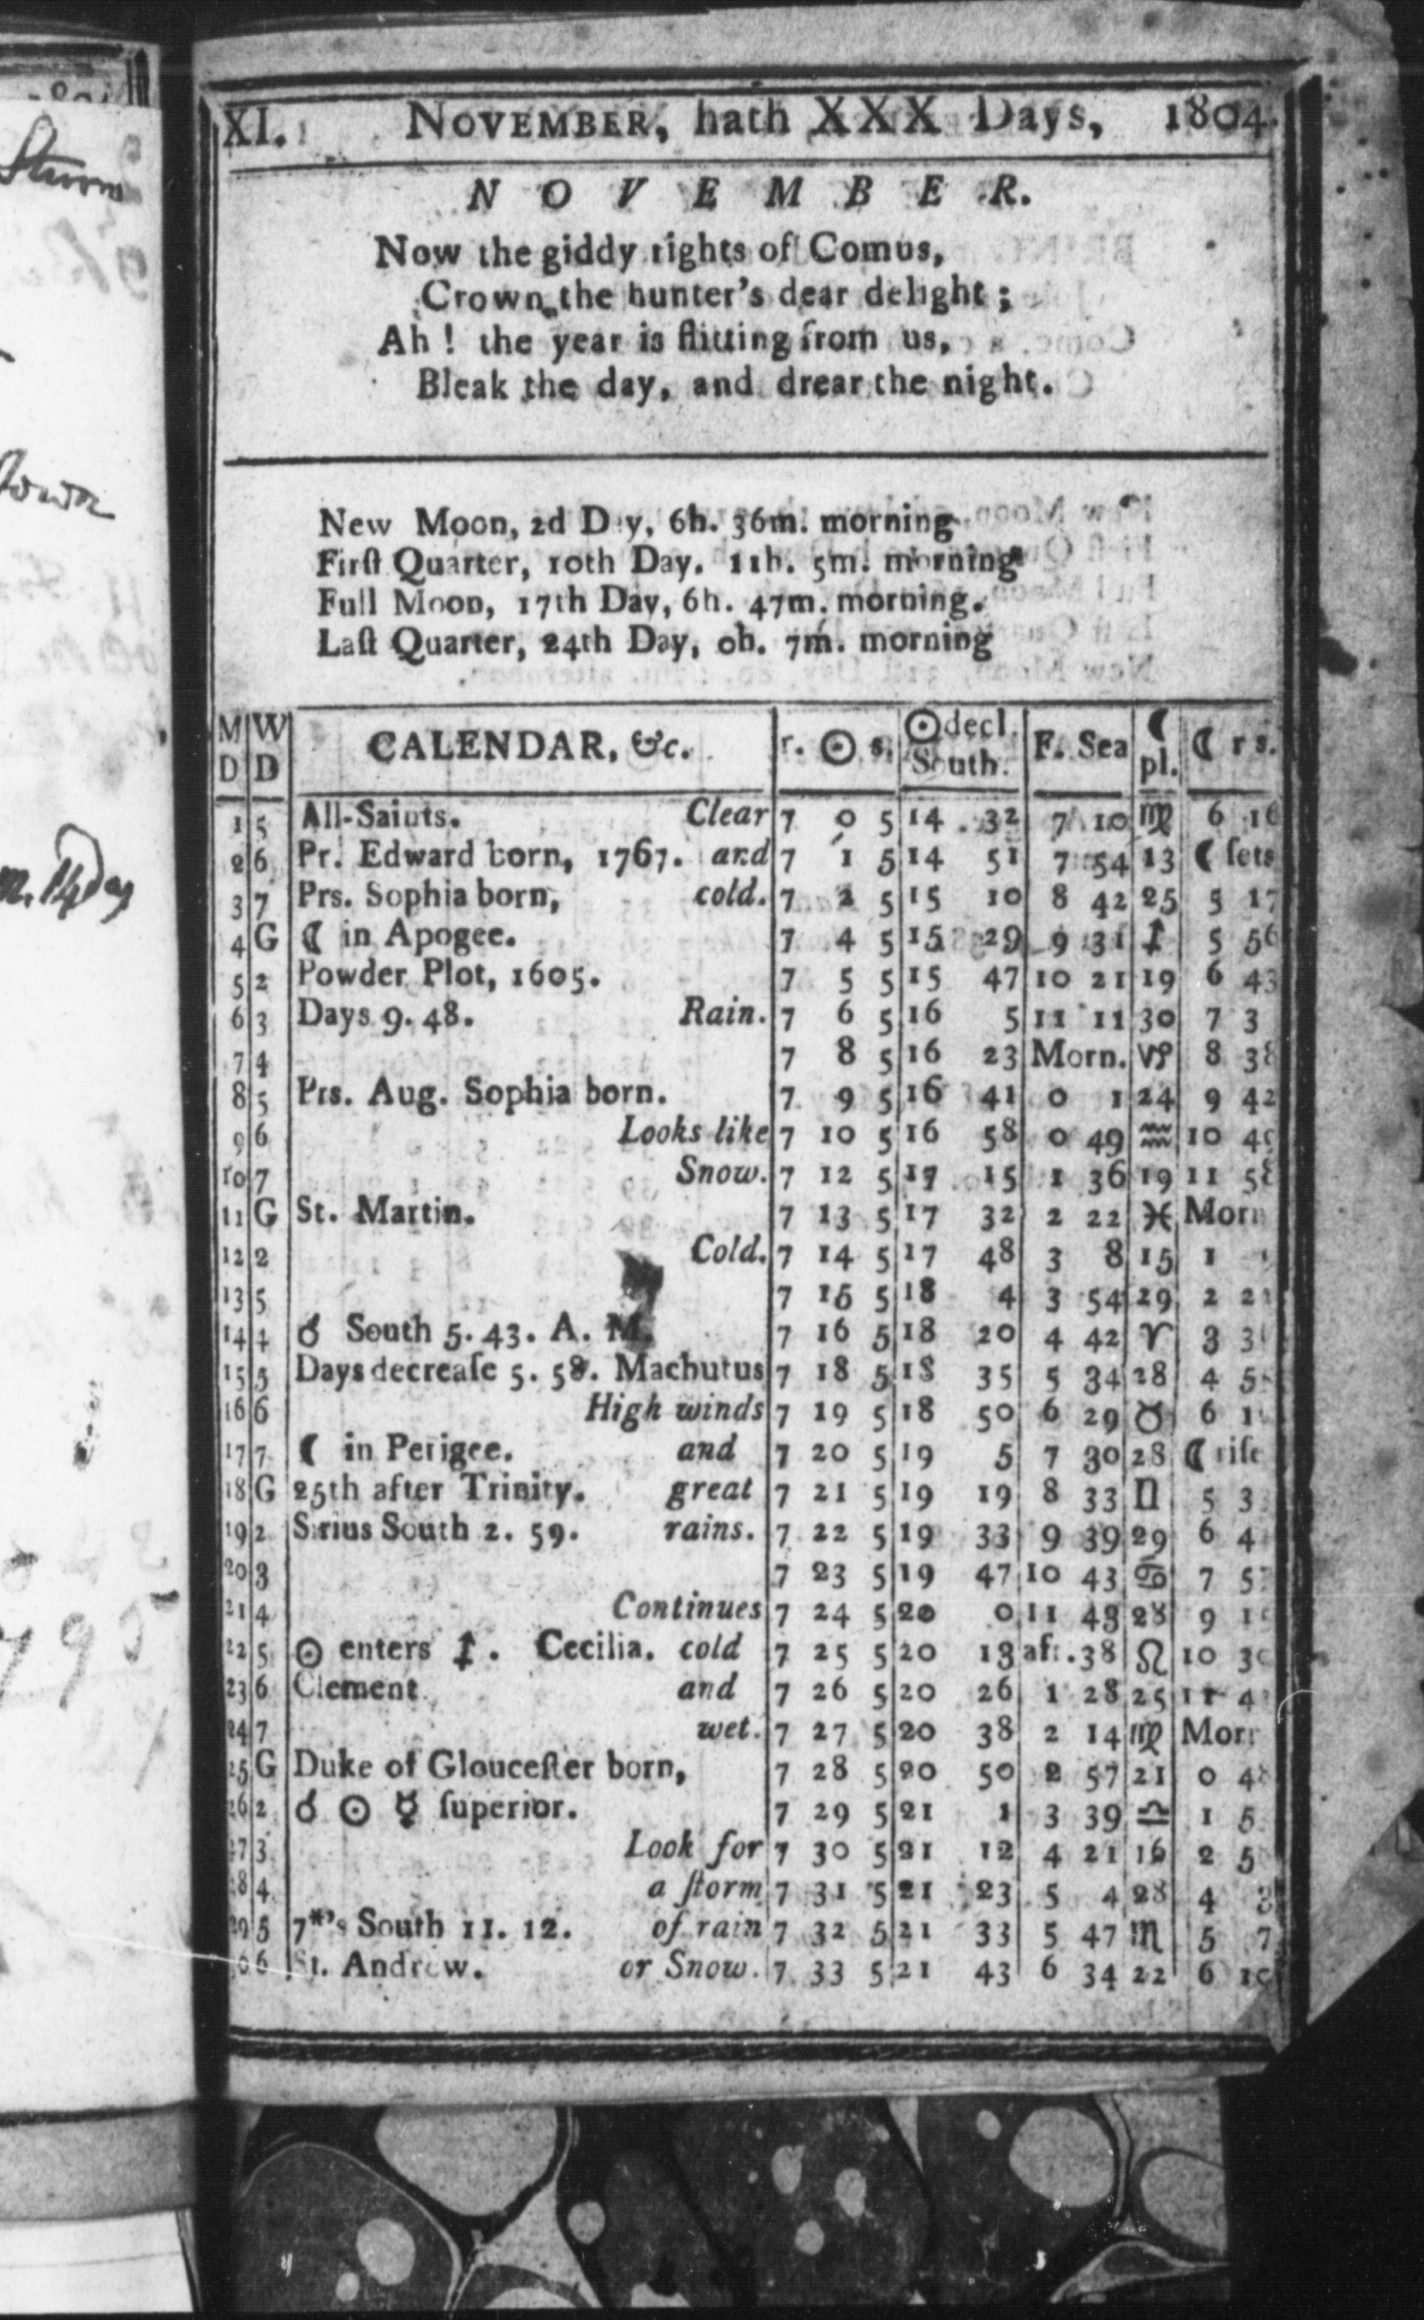 XI. NOVEMBER, hath XXX Days, 1804.
NOVEMBER.
Now the giddy rights of Comus,
Crown the hunter's dear delight ;
Ah ! the year is flitting from us,
Bleak the day, and drear the night.
New Moon, 2d D y, 6h. 36m. morning
Firſt Quarter, 10th Day. 11h. 5m. morning
Full Moon, 17th Day, 6h. 47m. morning.
Laſt Quarter, 24th Day, 0h. 7m. morning
M D W D CALENDAR, &c. r. ☉ s. ☉ decl. South. F. Sea ☾ pl. ☾ r s.
1 5 All-Saints. Clear 7 0 5 14 32 7 10 ♍ 6 16
2 6 Pr. Edward born, 1767. and 7 1 5 14 51 7 54 13 ☾ ſets
3 7 Prs. Sophia born, cold. 7 2 5 15 10 8 42 25 5 17
4 G ☾ in Apogee. 7 4 5 15 29 9 31 ♐ 5 56
5 2 Powder Plot, 1605. 7 5 5 15 47 10 21 19 6 43
6 3 Days 9. 48. Rain. 7 6 5 16 5 11 11 30 7 3
7 4 7 8 5 16 23 Morn. ♑ 8 38
8 5 Prs. Aug. Sophia born. 7 9 5 16 41 0 1 24 9 42
9 6 Looks like 7 10 5 16 58 0 49 ♒ 10 49
10 7 Snow. 7 12 5 17 15 1 36 19 11 58
11 G St. Martin. 7 13 5 17 32 2 22 ♓ Morn
12 2 Cold. 7 14 5 17 48 3 8 15 1
13 5 7 15 5 18 4 3 54 29 2 21
14 4 ♂ South 5. 43. A. M. 7 16 5 18 20 4 42 ♈ 3 3
15 5 Days decreaſe 5. 58. Machutus 7 18 5 18 35 5 34 28 4 5
16 6 High winds 7 19 5 18 50 6 29 ♉ 6 1
17 7 ☾ in Perigee. and 7 20 5 19 5 7 30 28 ☾ riſe
18 G 25th after Trinity. great 7 21 5 19 19 8 33 ♊ 5 3
19 2 Sirius South 2. 59. rains. 7 22 5 19 33 9 39 29 6 4
20 3 7 23 5 19 47 10 43 ♋ 7 5
21 4 Continues 7 24 5 20 0 11 43 28 9 1
22 5 ☉ enters ♐ . Cecilia. cold 7 25 5 20 13 aft. 38 ♌ 10 30
23 6 Clement and 7 26 5 20 26 1 28 25 11 4
24 7 wet. 7 27 5 20 38 2 14 ♍ Morr
25 G Duke of Glouceſter born, 7 28 5 20 50 2 57 21 0 48
26 2 ☌ ☉ ☿ ſuperior. 7 29 5 21 1 3 39 ♎ 1 5
27 3 Look for 7 30 5 21 12 4 21 16 2 5
28 4 a ſtorm 7 31 5 21 23 5 4 28 4 3
29 5 7*'s South 11. 12. of rain 7 32 5 21 33 5 47 ♏ 5 7
6 St. Andrew. or Snow. 7 33 5 21 43 6 34 22 6 19